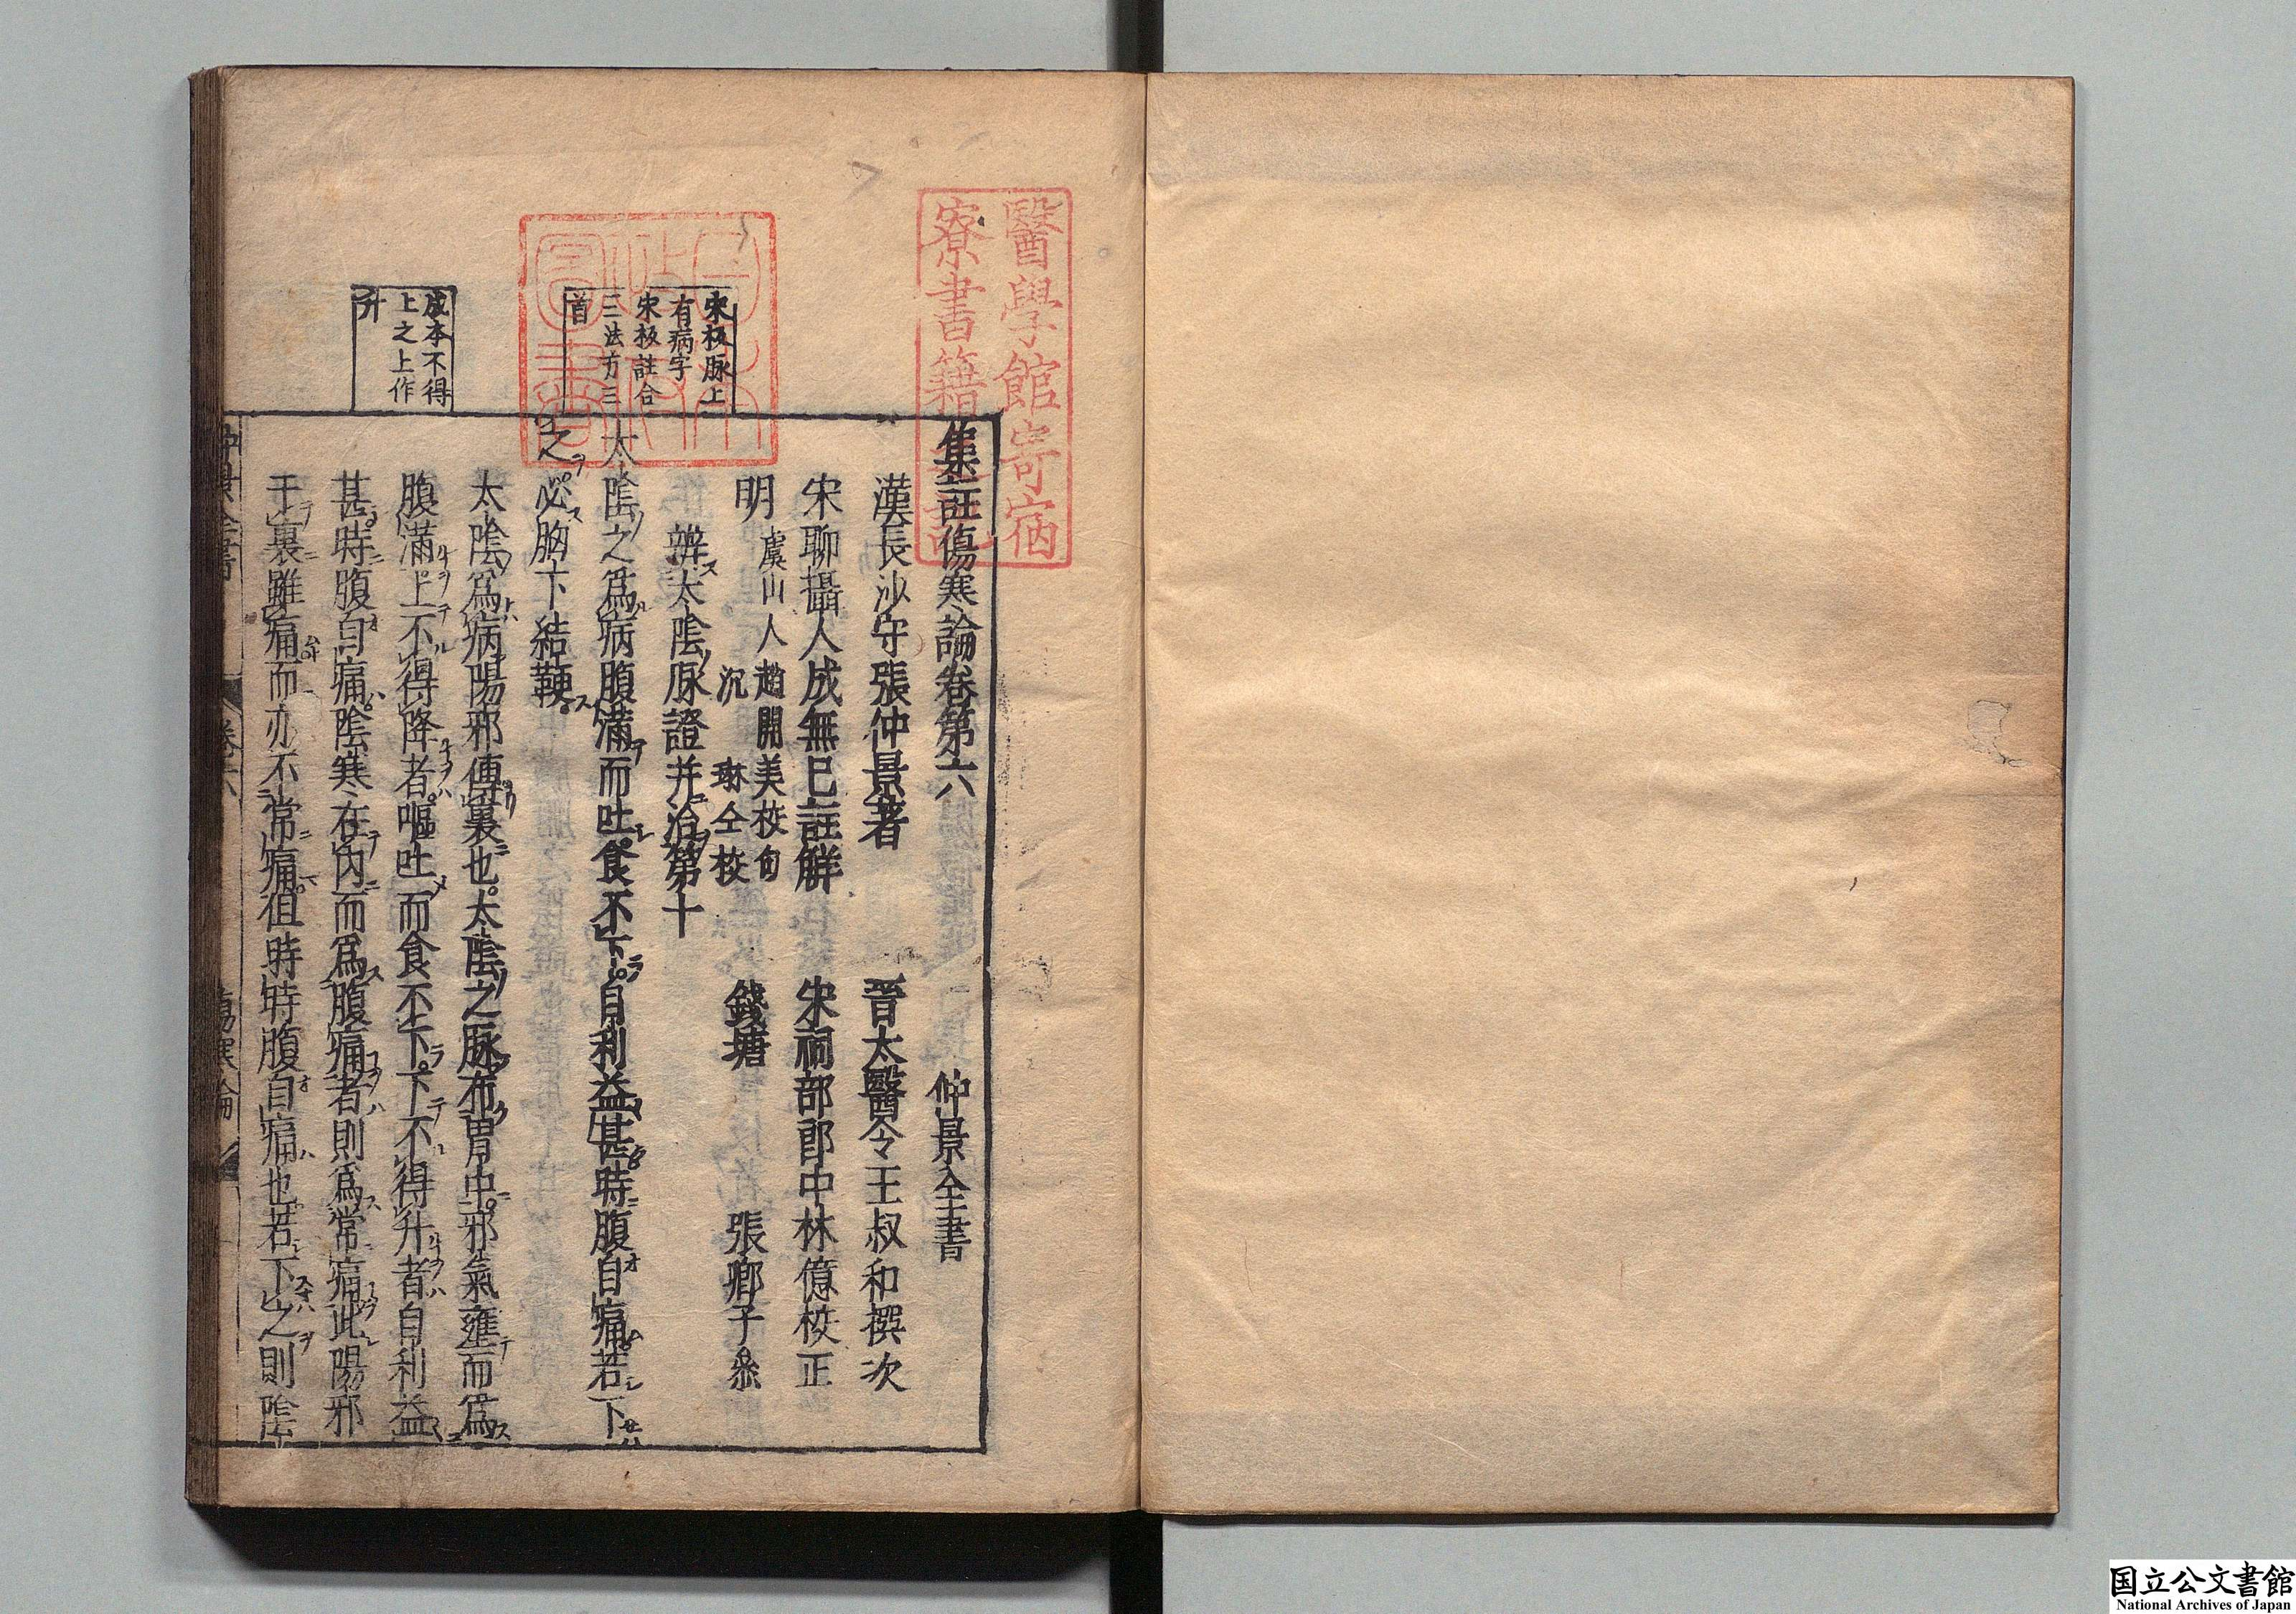 醫學館寄宿
寮書籍之記
宋板脉上
有病字
宋板註合
三法方三
首
成本不得
上之上作
升
集註傷寒論卷第六 仲景全書
漢長沙守張仲景著 晉太醫令王叔和撰次
宋聊攝人成無已註解 宋祠部郎中林億校正
明 虞山人趙開美校旬 沉琳仝校 錢塘 張卿子叅
辨太陰脉證并治第十
太陰之爲病腹滿而吐食不下自利益甚時腹自痛若下
之必胸下結鞕
太陰爲病陽邪傳裏也太陰之脉布胃中邪氣壅而爲
腹滿上不得降者嘔吐而食不下下不得升者自利益
甚時腹自痛陰寒在內而爲腹痛者則爲常痛此陽邪
干裏雖痛而亦不常痛但時時腹自痛也若下之則陰
仲景全書 卷六 傷寒論
国立公文書館
National Archives of Japan